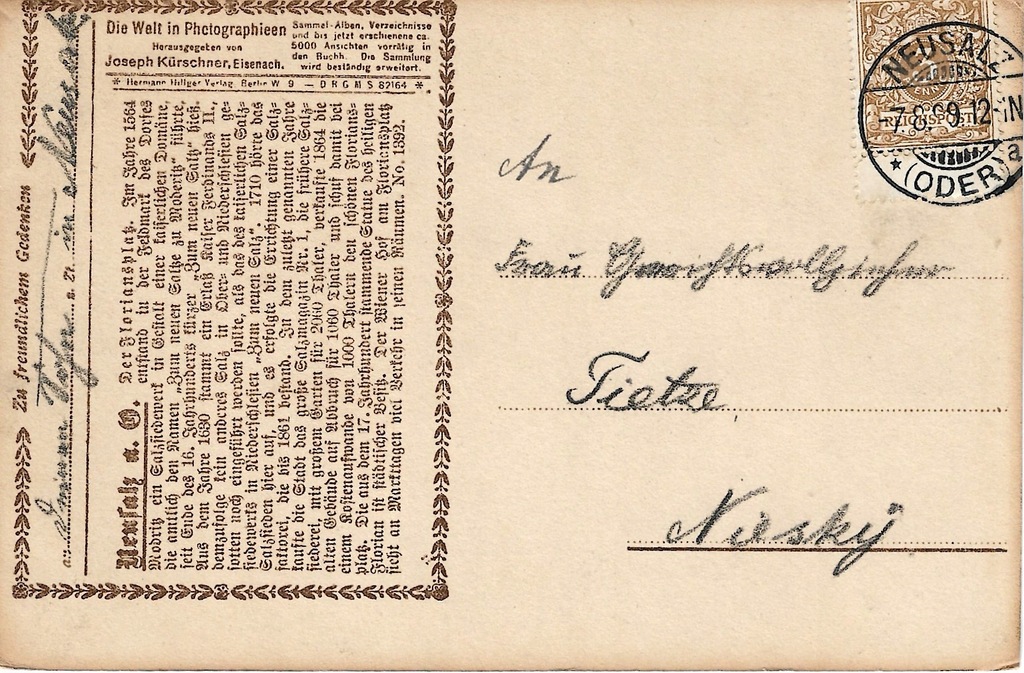 Die Welt in Photographieen
Herausgegeben von
Joseph Kürschner, Eisenach.
Sammel-Alben, Verzeichnisse
und bis jetzt erschienene ca.
5000 Ansichten vorrätig in
den Buchh. Die Sammlung
wird beständig erweitert.
* Hermann Hillger Verlag, Berlin W 9 — D R G M S 82164 *
Zu freundlichem Gedenken
an
in Neusalz
Neusalz a. O. Der Floriansplatz. Im Jahre 1564
entstand in der Feldmark des Dorfes
Modritz ein Salzsiedewerk in Gestalt einer kaiserlichen Domäne,
die amtlich den Namen „Zum neuen Saltze zu Moderitz“ führte,
seit Ende des 16. Jahrhunderts kürzer „Zum neuen Saltz“ hieß.
Aus dem Jahre 1630 stammt ein Erlaß Kaiser Ferdinands II.,
demzufolge kein anderes Salz in Ober- und Niederschlesien ge-
sotten noch eingeführt werden sollte, als das des kaiserlichen Salz-
siedewerks in Niederschlesien „Zum neuen Salz“. 1710 hörte das
Salzsieden hier auf, und es erfolgte die Errichtung einer Salz-
faktorei, die bis 1861 bestand. In dem zuletzt genannten Jahre
kaufte die Stadt das große Salzmagazin Nr. 1, die frühere Salz-
siederei, mit großem Garten für 2060 Thaler, verkaufte 1864 die
alten Gebäude auf Abbruch für 1060 Thaler und schuf damit bei
einem Kostenaufwande von 1000 Thalern den schönen Florians-
platz. Die aus dem 17. Jahrhundert stammende Statue des heiligen
Florian ist städtischer Besitz. Der Wiener Hof am Floriansplatz
sieht an Markttagen viel Verkehr in seinen Räumen. No. 1392.
REICHSPOST
NEUSALZ
7.8.69.12-1N
* (ODER) a
An
Frau Gerichtsvollzieher
Tietze
Niesky